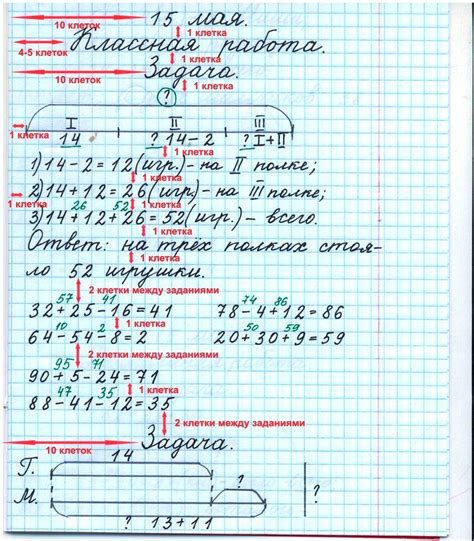 10 клеток 15 мая.
1 клетка
4-5 клеток Классная работа.
1 клетка
10 клеток Задача.
? 1 клетка
1 клетка I II III
14 ? 14-2 ? I+II
1) 14-2=12 (игр.)- на II полке;
1 клетка
1 клетка 2) 14+12=26 (игр.)- на III полке;
26 52 1 клетка
3) 14+12+26=52 (игр.)- всего.
1 клетка
Ответ: на трёх полках стоя-
1 клетка
ло 52 игрушки.
2 клетки между заданиями
57 41 74 86
32+25-16=41 78-4+12=86
10 2 1 клетка 50 59
64-54-8=2 20+30+9=59
2 клетки между заданиями
95 71
90+5-24=71
47 35 1 клетка
88-41-12=35
2 клетки между заданиями
10 клеток Задача.
14
Т.
? ?
М.
? 13+11